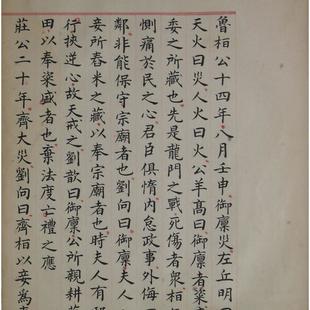 魯桓公十四年八月壬申御廩災左丘明曰
天火曰災人火曰火公羊高曰御廩者粢盛
委之所藏也先是龍門之戰死傷者眾桓
惻痛於民之心君臣俱惰內怠政事外侮
鄰非能保守宗廟者也劉向曰御廩夫人
妾所舂米之藏以奉宗廟者也時夫人有
行挾逆心故天戒之劉歆曰御廩公所親耕
田以奉粢盛者也棄法度亡禮之應
莊公二十年齊大災劉向曰齊桓以妾為